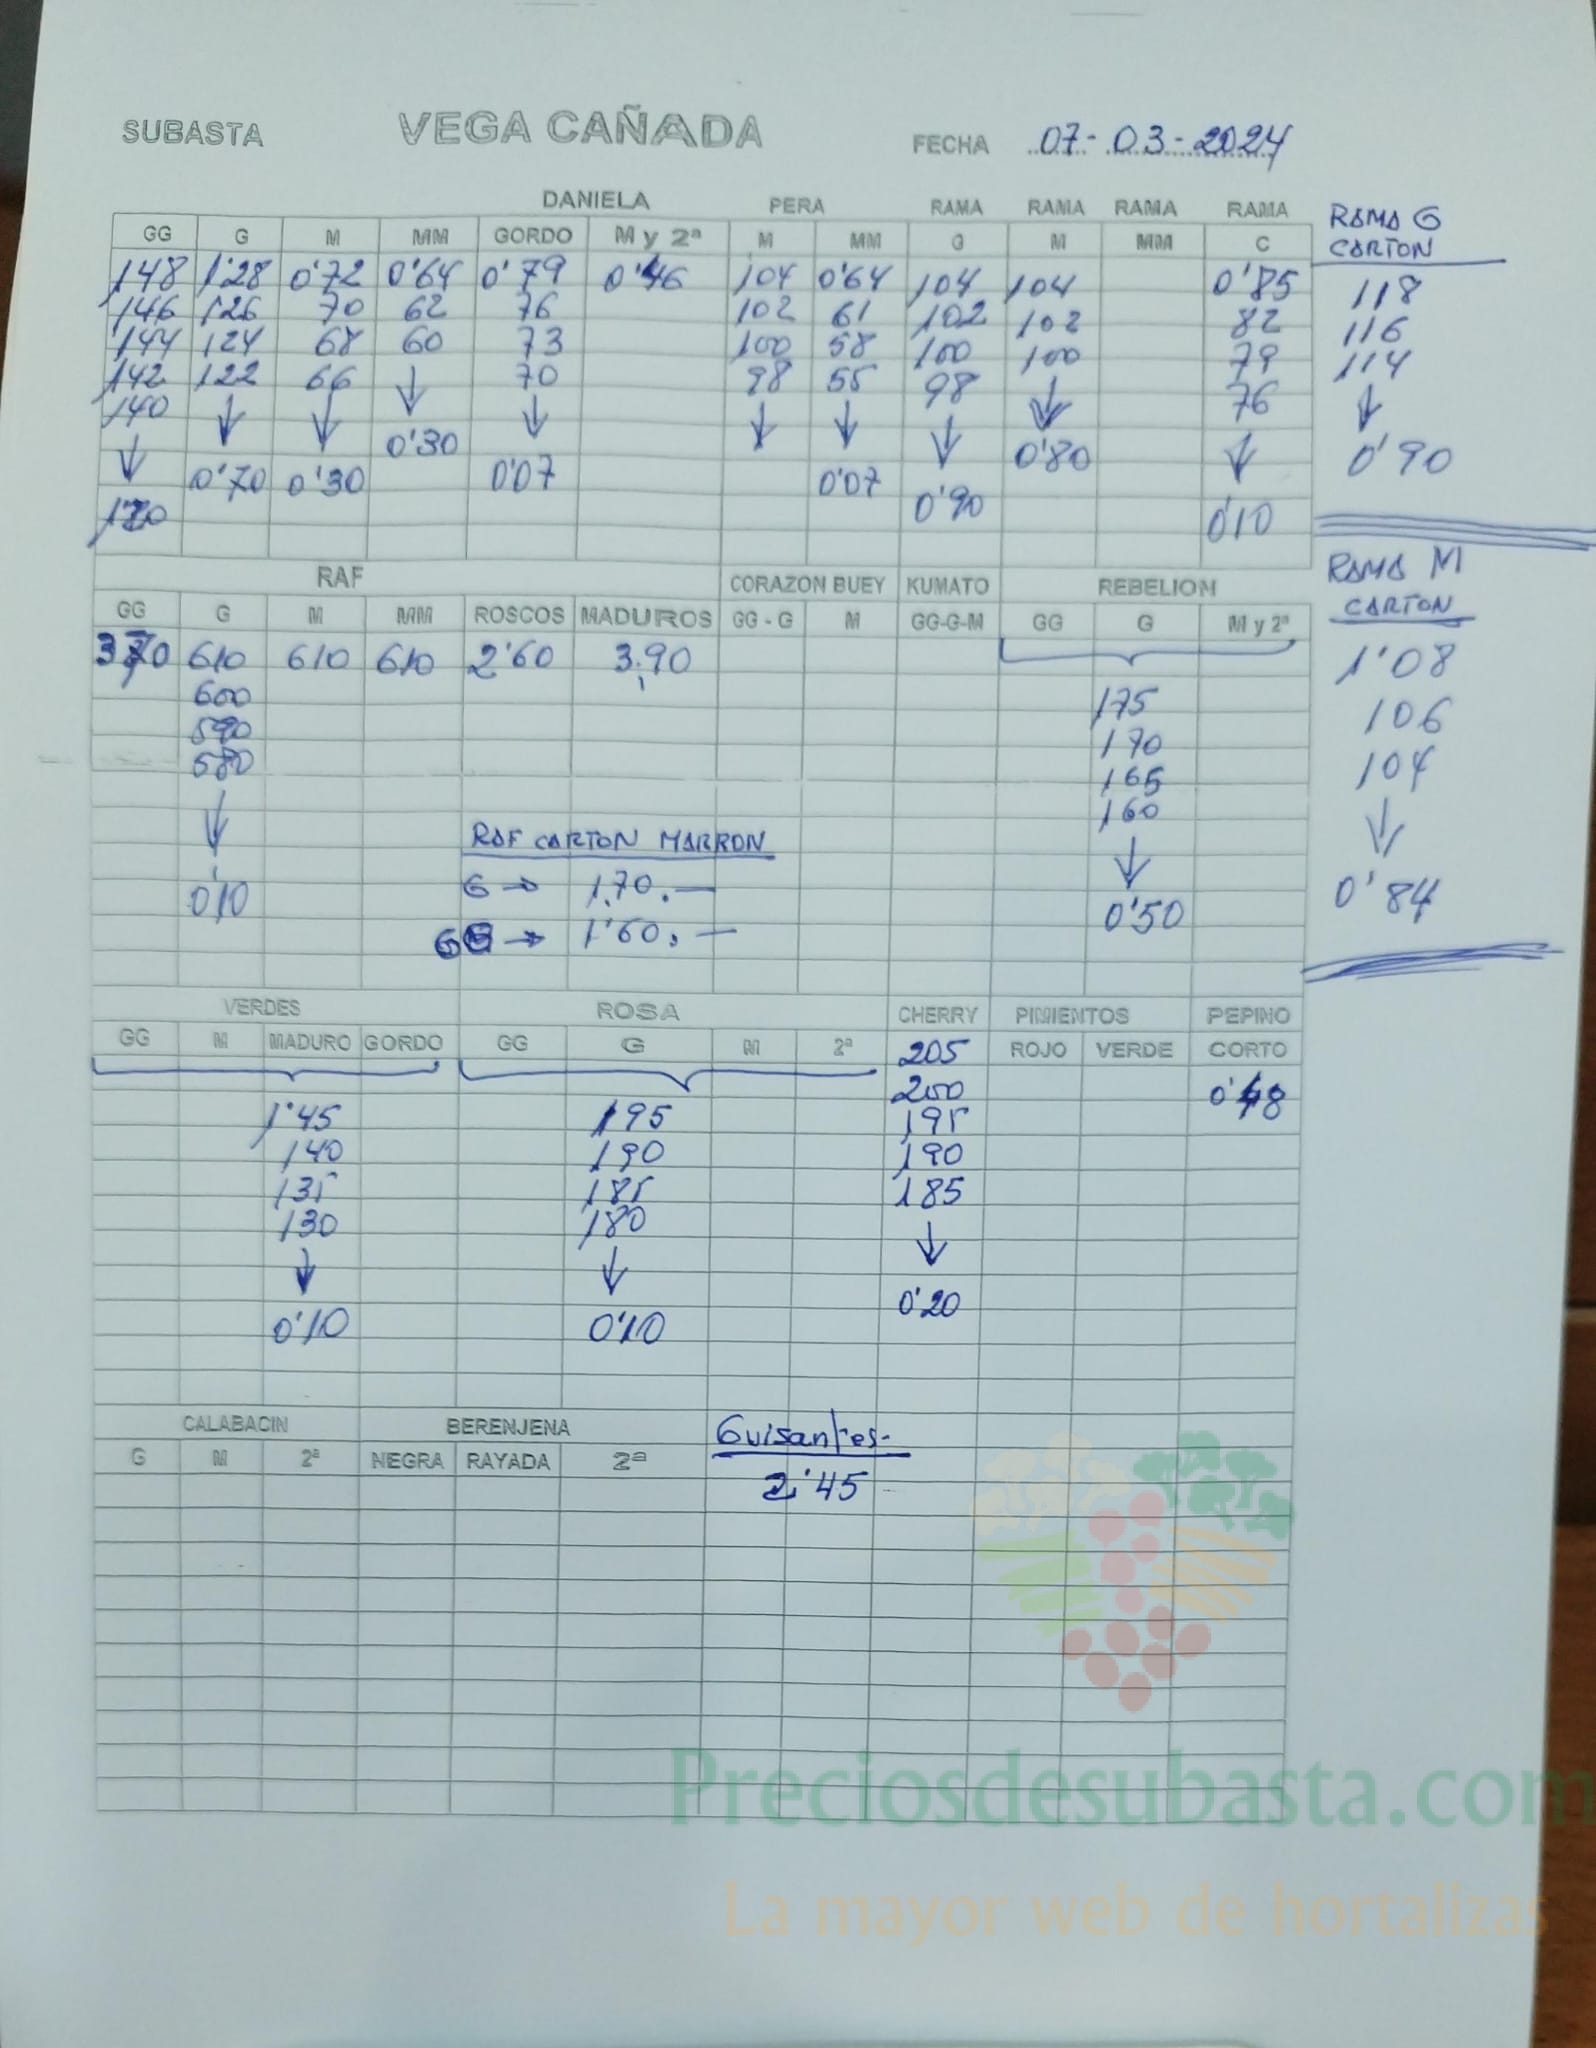 SUBASTA VEGA CAÑADA FECHA 07-03-2024
DANIELA PERA RAMA RAMA RAMA RAMA RAMA G
GG G M MM GORDO M y 2ª M MM G M MM C CARTON
148 1'28 0'72 0'64 0'79 0'46 104 0'64 104 104 0'85 118
146 126 70 62 76 102 61 102 102 82 116
144 124 68 60 73 100 58 100 100 79 114
142 122 66 ↓ 70 98 55 98 ↓ 76 ↓
140 ↓ ↓ 0'30 ↓ ↓ ↓ ↓ 0'80 ↓ 0'90
↓ 0'70 0'30 0'07 0'07 0'90 0'10
RAF CORAZON BUEY KUMATO REBELION RAMA M
GG G M MM ROSCOS MADUROS GG - G M GG-G-M GG G M y 2ª CARTON
610 610 610 2'60 3,90 1'08
600 175 106
590 170 104
580 165 ↓
↓ 160 0'84
0'10 ↓
0'50
RAF CARTON MARRON
G → 1.70.—
GG → 1'60.—
VERDES ROSA CHERRY PIMIENTOS PEPINO
GG M MADURO GORDO GG G M 2ª 205 ROJO VERDE CORTO
200 0'48
1'45 195 195
140 190 190
135 185 185
130 180 ↓
↓ ↓ 0'20
0'10 0'10
CALABACIN BERENJENA Guisantes-
G M 2ª NEGRA RAYADA 2ª 2'45
Preciosdesubasta.com
La mayor web de hortalizas